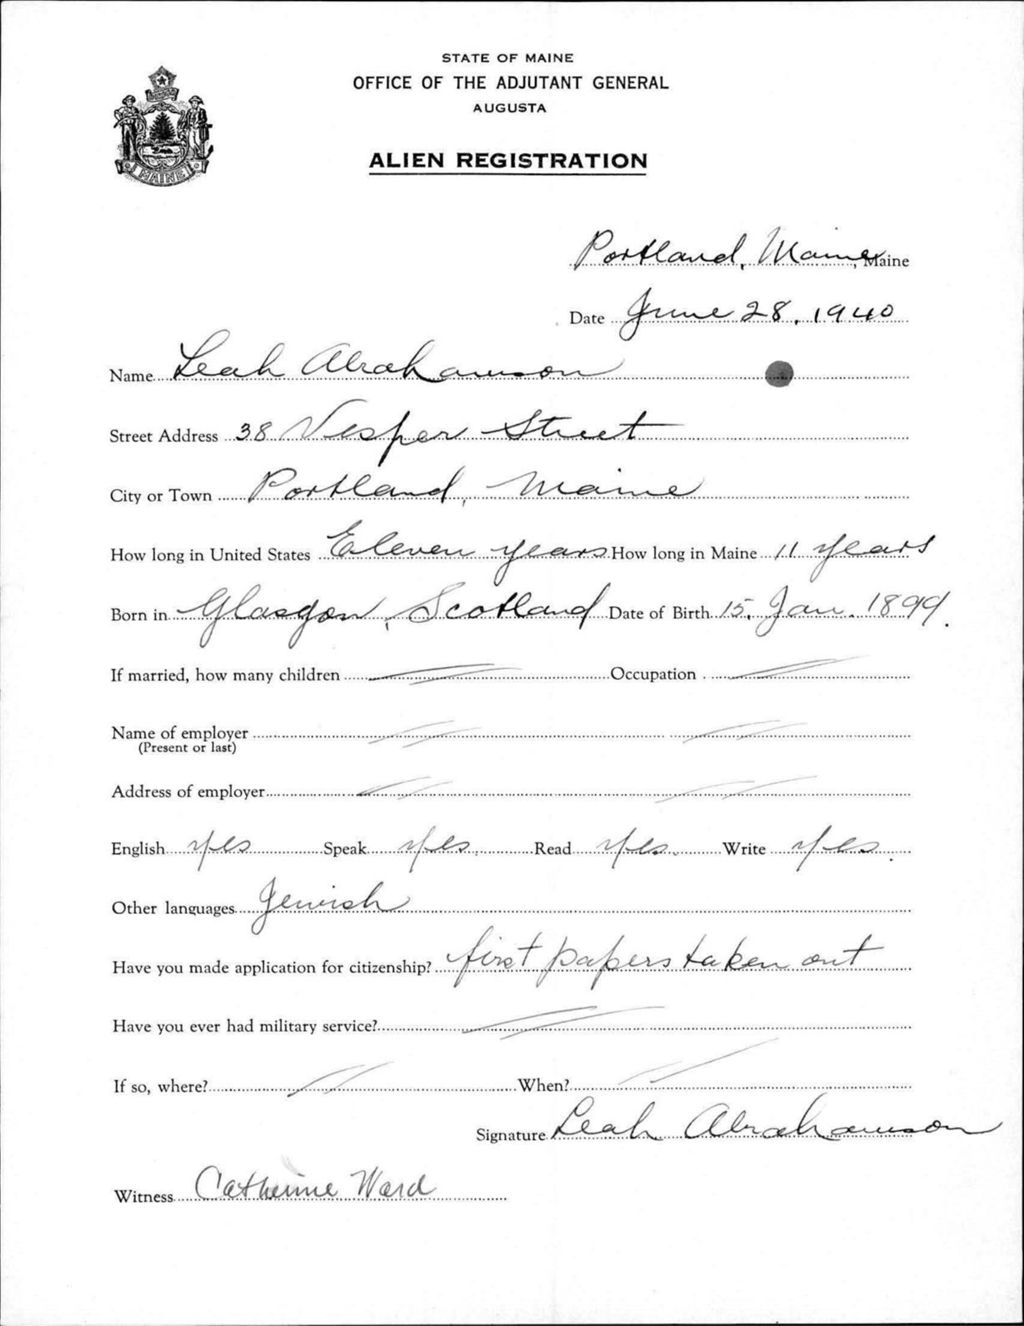 STATE OF MAINE
OFFICE OF THE ADJUTANT GENERAL
AUGUSTA
ALIEN REGISTRATION
MAINE
Portland, Maine, Maine
Date June 28, 1940
Name Leah Abrahamson
Street Address 38 Vesper Street
City or Town Portland, Maine
How long in United States Eleven years How long in Maine 11 years
Born in Glasgow, Scotland Date of Birth 15, Jan. 1899.
If married, how many children Occupation
Name of employer
(Present or last)
Address of employer
English yes Speak yes. Read yes. Write yes.
Other languages Jewish
Have you made application for citizenship? first papers taken out
Have you ever had military service?
If so, where? When?
Signature Leah Abrahamson
Witness Catherine Ward